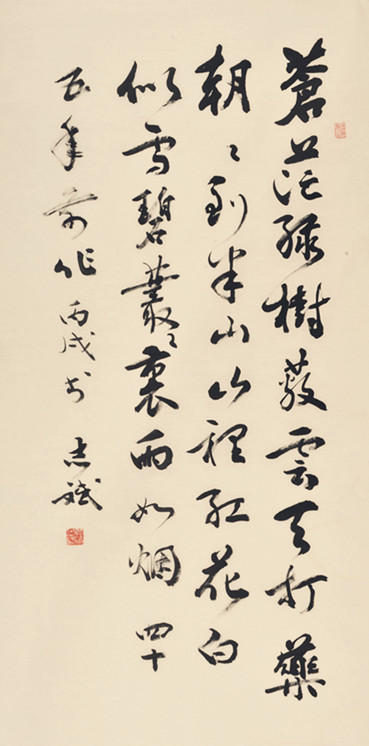 蒼茫綠樹蔽雲天打藥
朝〻到半山山裡紅花白
似雪碧叢〻裏雨如烟 四十
五年前作 丙戌書 志斌